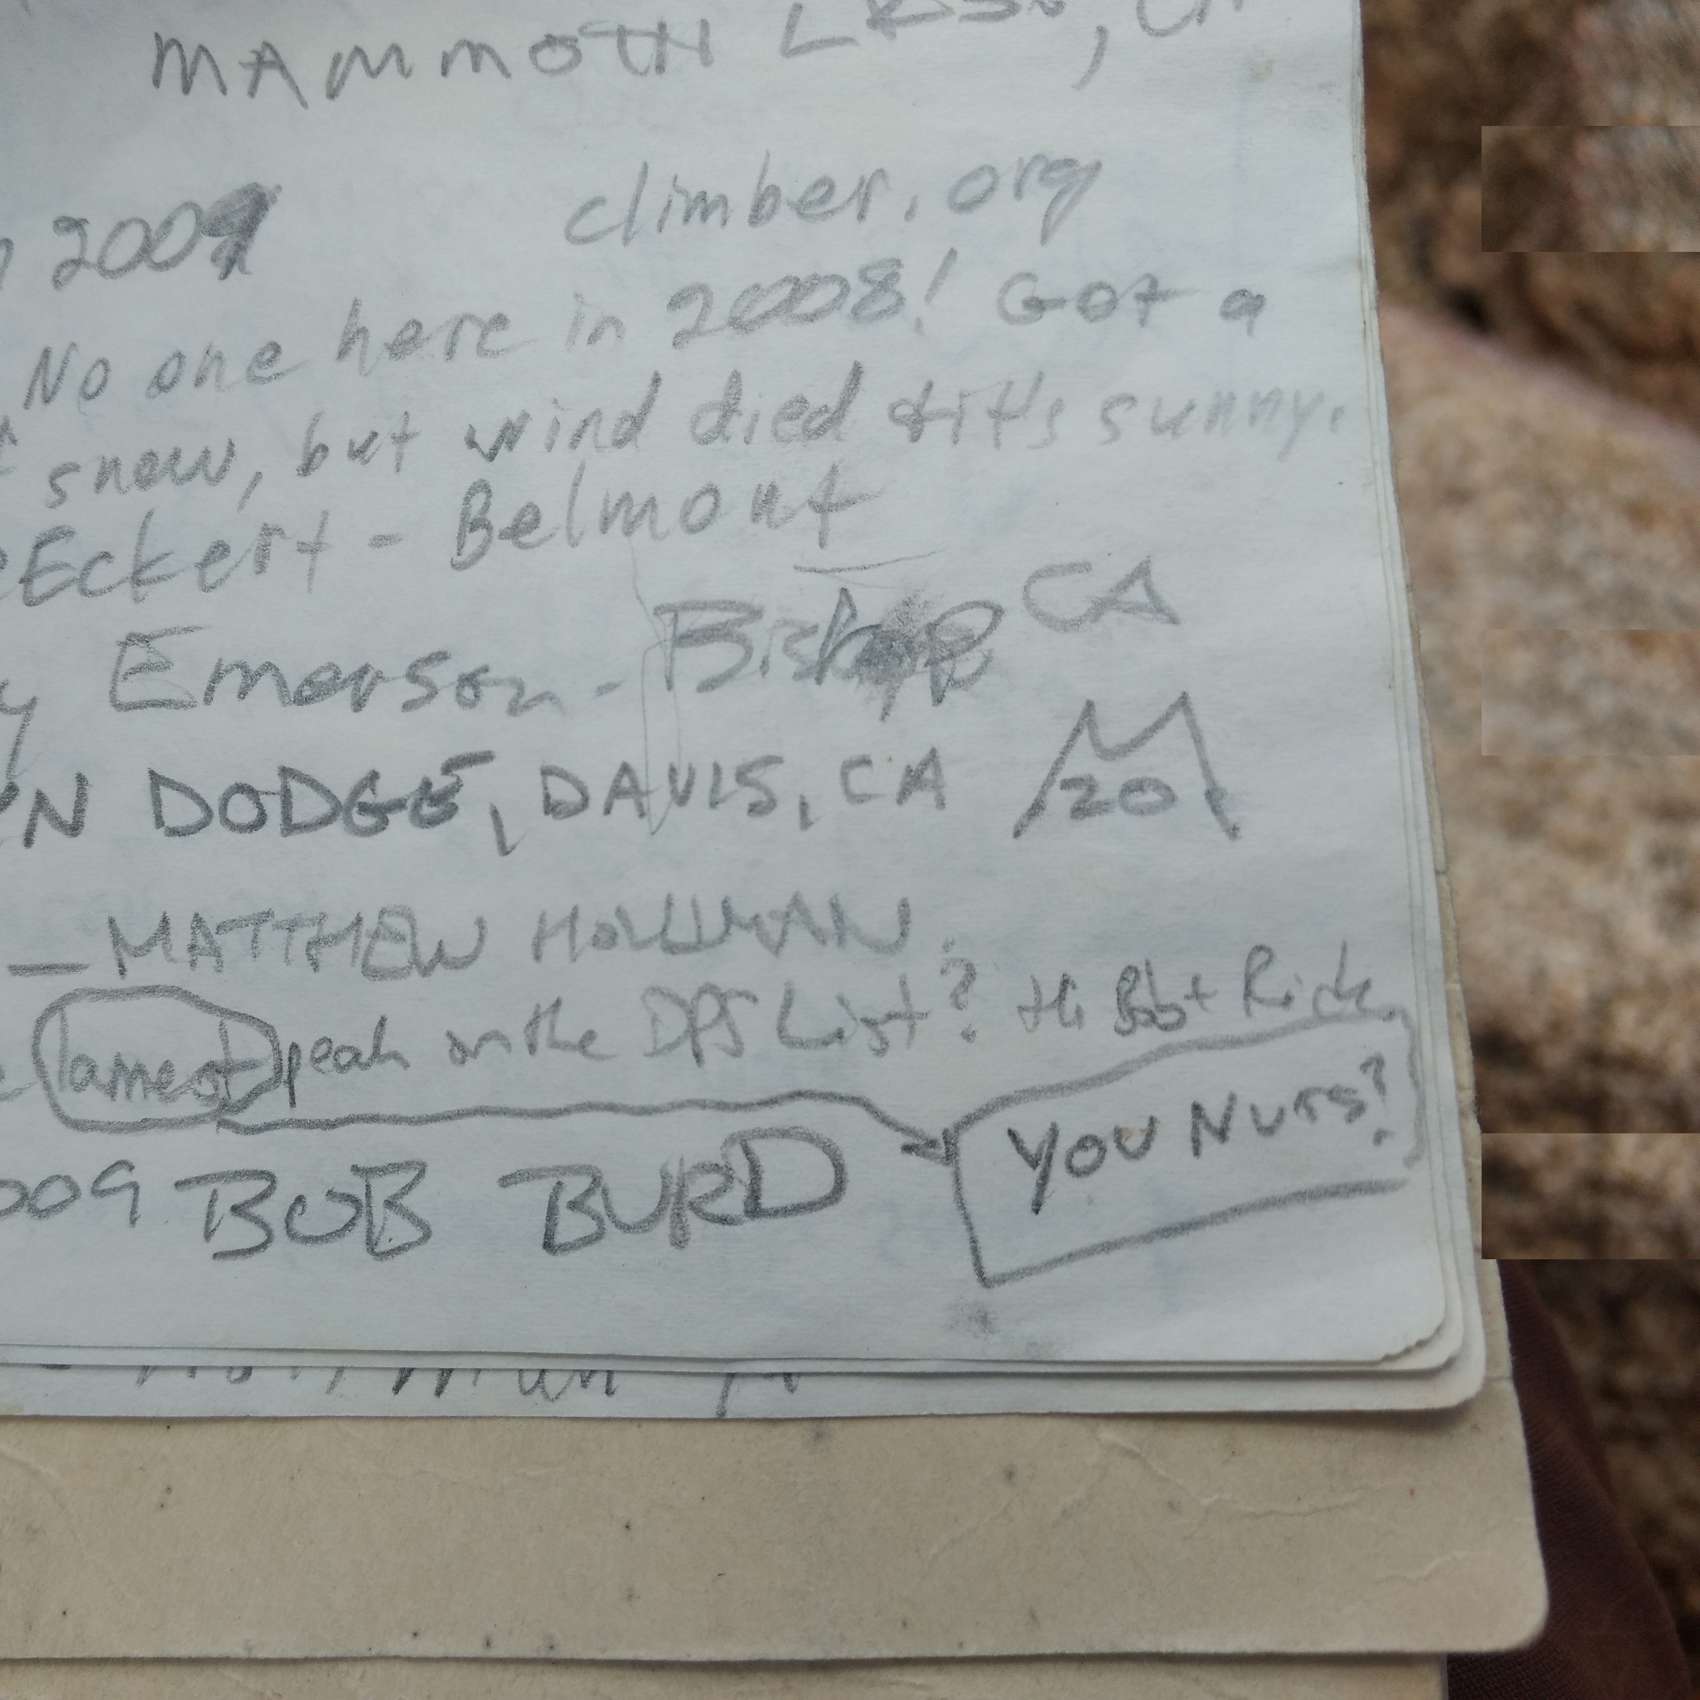 MAMMOTH LKS., CA
2009 climber.org
No one here in 2008! Got a
snow, but wind died & it's sunny.
Eckert - Belmont
y Emerson - Bishop CA
N DODGE, DAVIS, CA
20
MATTHEW HOLLIMAN.
lamest peak on the DPS List? Hi Bob + Rick
YOU NUTS?
009 BOB BURD